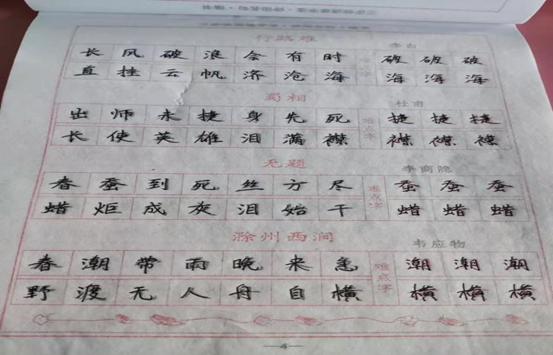 行路难 李白
长风破浪会有时 破破破
直挂云帆济沧海 海海海
蜀相 杜甫
出师未捷身先死 难点字 捷捷捷
长使英雄泪满襟 襟襟襟
无题 李商隐
春蚕到死丝方尽 难点字 蚕蚕蚕
蜡炬成灰泪始干 蜡蜡蜡
滁州西涧 韦应物
春潮带雨晚来急 难点字 潮潮潮
野渡无人舟自横 横横横
4